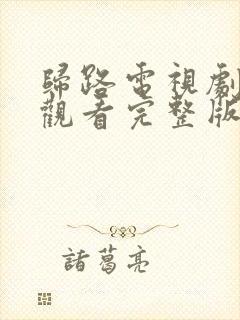 歸路電視劇
觀看完整版
諸葛亮